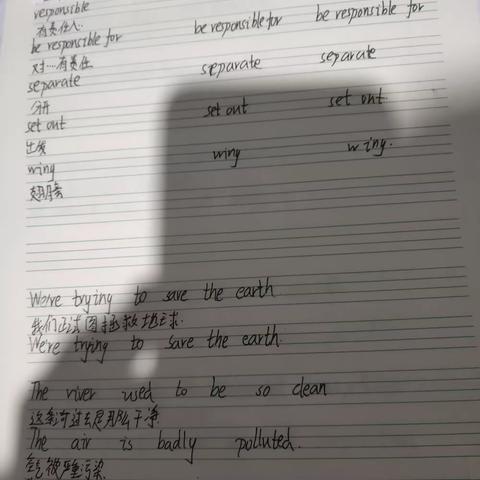 responsible
有责任人.
be responsible for be responsible for be responsible for
对…有责任
separate separate separate
分开
set out set out set out
出发
wing wing wing.
翅膀
We're trying to save the earth
我们正试图拯救地球.
We're trying to save the earth.
The river used to be so clean
这条河过去是那么干净.
The air is badly polluted.
空气被严重污染.